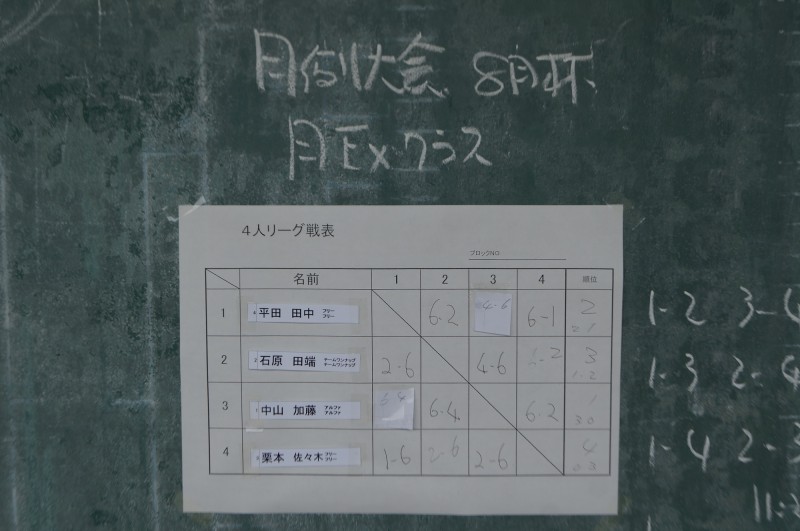 月例大会 8月杯
月Exクラス
4人リーグ戦表
ブロックNO
名前 1 2 3 4 順位
1 平田 田中 フリー フリー 6-2 4-6 6-1 2
2 石原 田端 チームワンナップ チームワンナップ 2-6 4-6 6-2 3
1-2
3 中山 加藤 アルファ アルファ 6-4 6-4 6-2 1
3 0
4 栗本 佐々木 フリー フリー 1-6 2-6 2-6 4
1-2 3-4
1-3 2-4
1-4 2-3